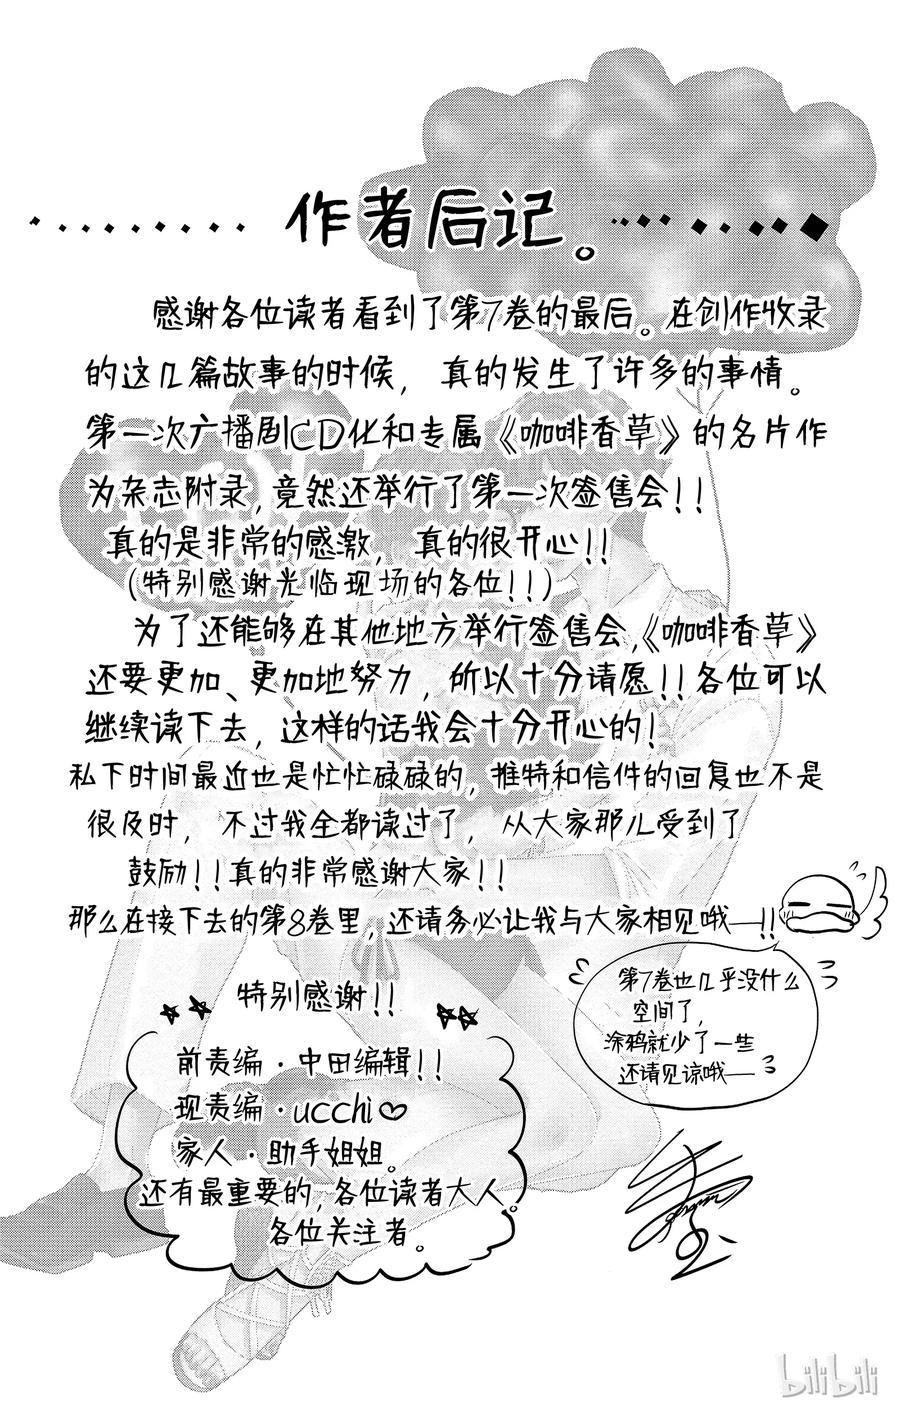 作者后记。
感谢各位读者看到了第7卷的最后。在创作收录
的这几篇故事的时候，真的发生了许多的事情。
第一次广播剧CD化和专属《咖啡香草》的名片作
为杂志附录，竟然还举行了第一次签售会！！
真的是非常的感激，真的很开心！！
（特别感谢光临现场的各位！！）
为了还能够在其他地方举行签售会，《咖啡香草》
还要更加、更加地努力，所以十分请愿！！各位可以
继续读下去，这样的话我会十分开心的！
私下时间最近也是忙忙碌碌的，推特和信件的回复也不是
很及时，不过我全都读过了，从大家那儿受到了
鼓励！！真的非常感谢大家！！
那么在接下去的第8卷里，还请务必让我与大家相见哦——！！
第7卷也几乎没什么
空间了，
涂鸦就少了一些
还请见谅哦——
特别感谢！！
前责编·中田编辑！！
现责编·ucchi♡
家人·助手姐姐。
还有最重要的，各位读者大人。
各位关注者。
bilibili